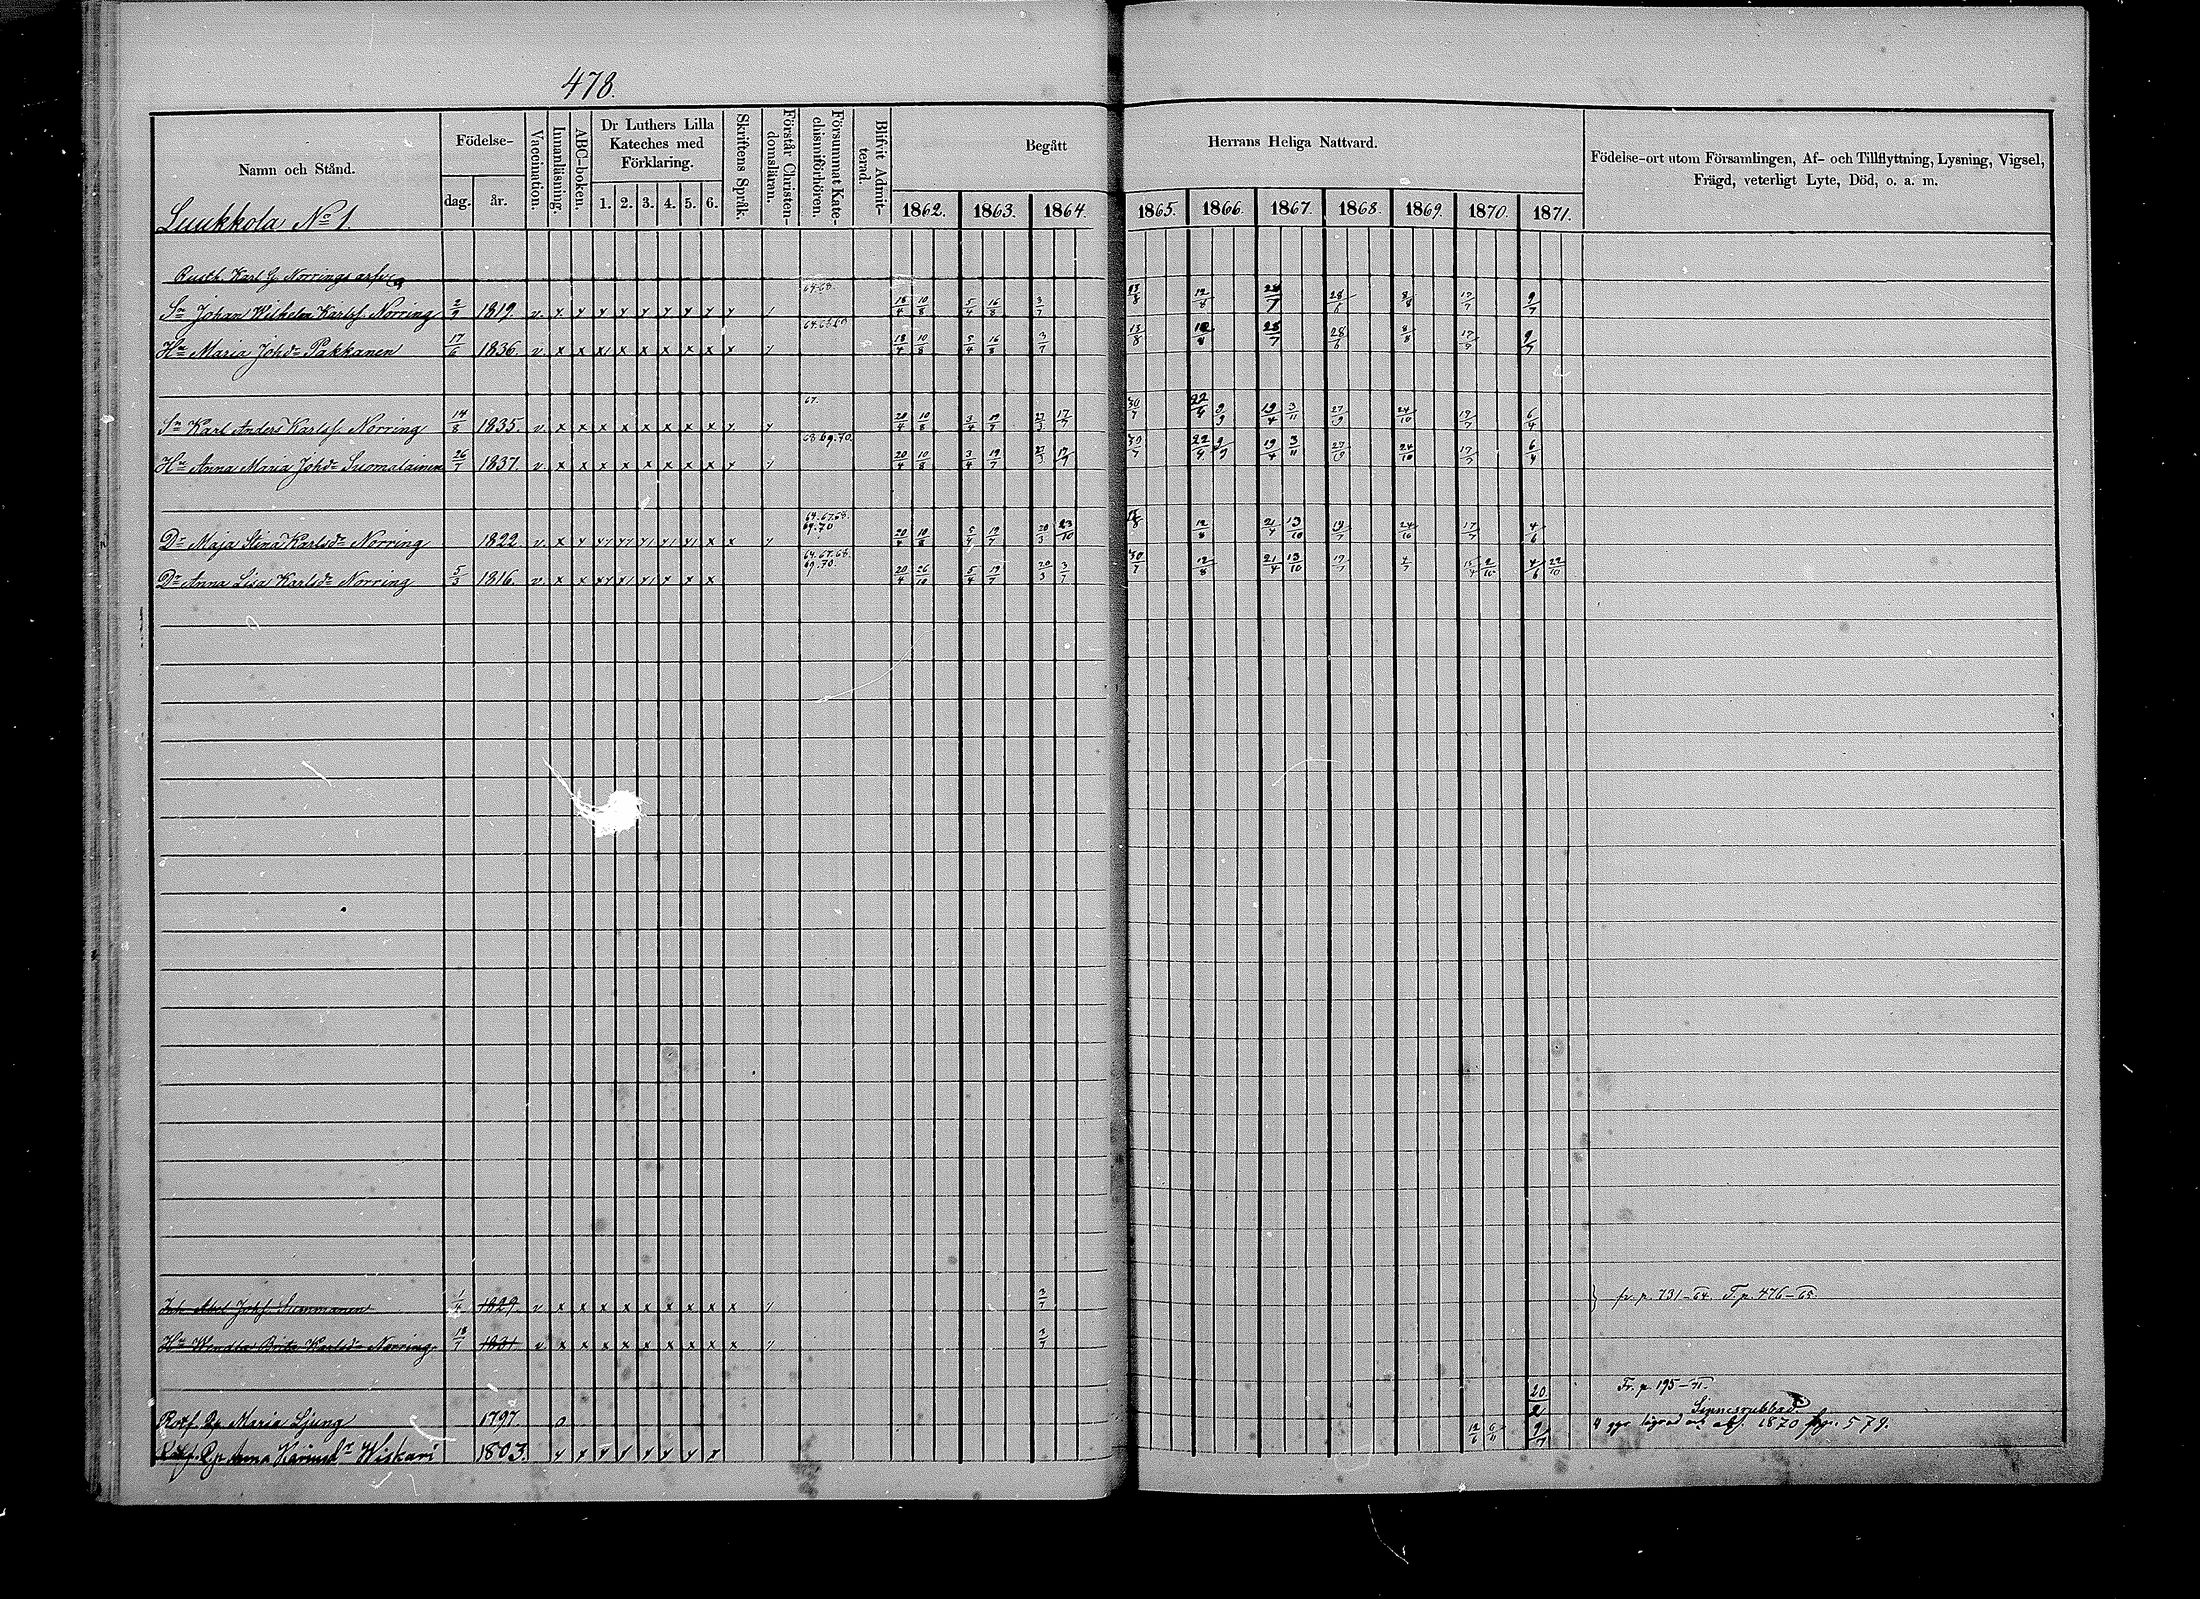 478.
Namn och Stånd.
Födelse-
dag. år.
Vaccination.
Innanläsning.
ABC-boken.
Dr Luthers Lilla Kateches med Förklaring.
1. 2. 3. 4. 5. 6.
Skriftens Språk.
Förstår Christen-domsläran.
Försummat Kate-chismiförhören.
Blifvit Admit-terad.
Begått Herrans Heliga Nattvard.
1862. 1863. 1864. 1865. 1866. 1867. 1868. 1869. 1870. 1871.
Födelse-ort utom Församlingen, Af- och Tillflyttning, Lysning, Vigsel,
Frägd, veterligt Lyte, Död, o. a. m.
Luukkola No 1.
Karl Norrings
Sn Johan Wilhelm Karlsf. Norring 2/9 1819. v x x x x x x x x x 64.68. 18/4 10/8 5/4 16/8 3/7 13/8 12/8 28/7 28/6 8/8 17/7 9/7
Hu Maria Johdr Pakkanen 17/6 1836. v x x x x x x x x x 18/4 10/8 5/4 16/8 3/7 13/8 12/8 28/7 28/6 8/8 17/7 9/7
Sn Karl Anders Karlsf. Norring 14/8 1835. v x x x x x x x x x 67. 20/4 10/8 3/4 19/7 27/3 17/7 30/7 22/4 9/9 19/4 3/11 27/9 24/10 17/7 6/4
Hu Anna Maria Johdr Suomalainen 26/7 1837. v x x x x x x x x x 68.69.70. 20/4 10/8 3/4 19/7 27/3 17/7 30/7 22/4 9/9 19/4 3/11 27/9 24/10 17/7 6/4
Dr Maja Stina Karlsdr Norring 1822. v x x x x x x x x x 64.67.68. 69.70 20/4 10/8 5/4 19/7 20/3 23/10 12/8 21/4 13/10 19/7 24/10 17/7 4/6
Dr Anna Lisa Karlsdr Norring 5/3 1816. v x x x x x x x x 64.67.68. 69.70. 20/4 26/10 5/4 19/7 20/3 3/7 30/7 12/8 21/4 13/10 19/7 4/7 4/6 22/10
Abel Johsf. Summanen 1/4 1829. v x x x x x x x x x 3/7 } fr. p. 731-64. T. p. 476-65.
Hu Wendla Brita Karlsdr Norring 18/7 1831 v x x x x x x x x x 3/7
Maria Ljung 1797. 20/2 Fr. p. 195-71.
Sinnesrubbad.
Anna Wiskari 1803. x x x x x x x x 12/6 6/11 9/7 4 1870 579.